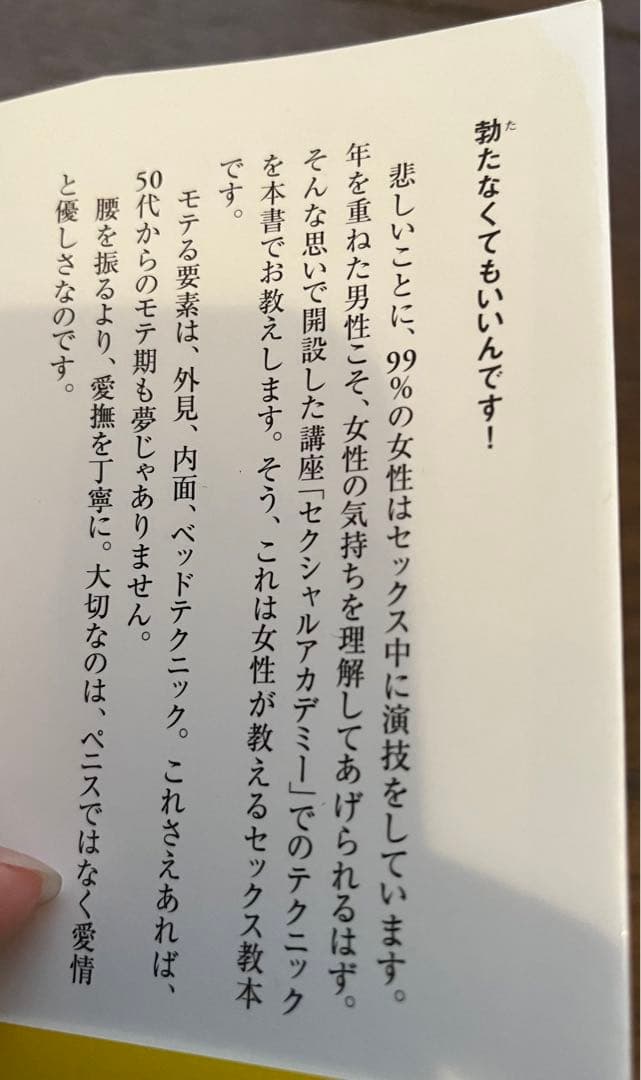 勃たなくてもいいんです！
悲しいことに、99％の女性はセックス中に演技をしています。
年を重ねた男性こそ、女性の気持ちを理解してあげられるはず。
そんな思いで開設した講座「セクシャルアカデミー」でのテクニック
を本書でお教えします。そう、これは女性が教えるセックス教本
です。
モテる要素は、外見、内面、ベッドテクニック。これさえあれば、
50代からのモテ期も夢じゃありません。
腰を振るより、愛撫を丁寧に。大切なのは、ペニスではなく愛情
と優しさなのです。